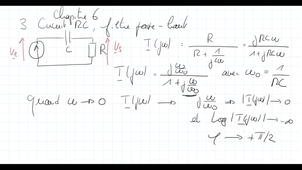 Chapitre 6
3 Circuit RC, f. the passe-haut
Ve C R Vs
T(jω) = R / (R + 1/jCω) = jRCω / (1 + jRCω)
T(jω) = j ω/ω0 / (1 + j ω/ω0) avec ω0 = 1/RC
quand ω → 0 T(jω) → j ω/ω0 ⇒ |T(jω)| → 0
et Log |T(jω)| → -∞
φ → + π/2